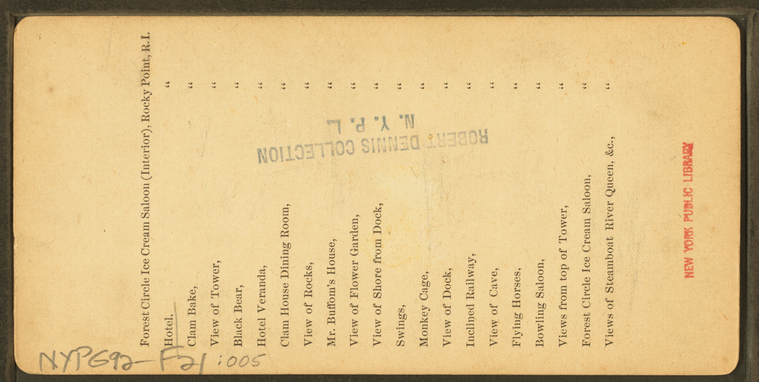 Forest Circle Ice Cream Saloon (Interior), Rocky Point, R.I.
Hotel. "
Clam Bake, "
View of Tower, "
Black Bear, "
Hotel Veranda, "
Clam House Dining Room, "
View of Rocks, "
Mr. Buffom's House, "
View of Flower Garden, "
View of Shore from Dock, "
Swings, "
Monkey Cage, "
View of Dock, "
Inclined Railway, "
View of Cave, "
Flying Horses, "
Bowling Saloon, "
Views from top of Tower, "
Forest Circle Ice Cream Saloon, "
Views of Steamboat River Queen, &c., "
ROBERT DENNIS COLLECTION
N. Y. P. L.
NEW YORK PUBLIC LIBRARY
NYPG92-F21:005